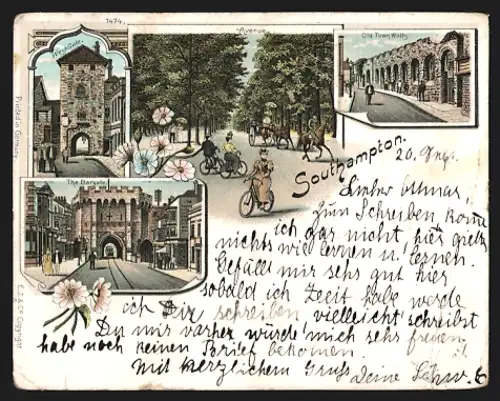 1474.
West Gate.
Avenue
Old Town Walls
Printed in Germany.
The Bargate.
E.J. & Co Copyright
Southampton.
20.
Lieber Ottmar,
Zum Schreiben komme
ich gar nicht, hier giebts
nichts wie lernen u. tennen.
Gefällt mir sehr gut hier
sobald ich Zeit habe werde
ich Dir schreiben vielleicht schreibst
Du mir vorher würde mich sehr freuen
habe noch keinen Brief bekommen.
Mit herzlichem Gruss Deine